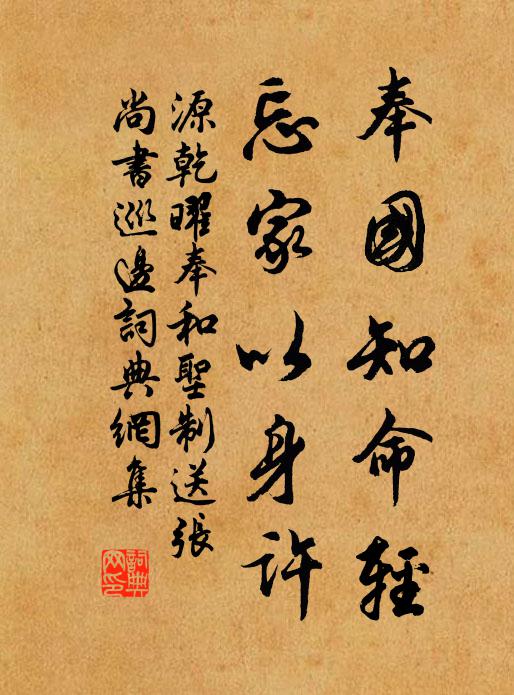 奉國知命輕
忘家以身許
源乾曜奉和聖制送張
尚書巡邊詞典網集
詞典
网印